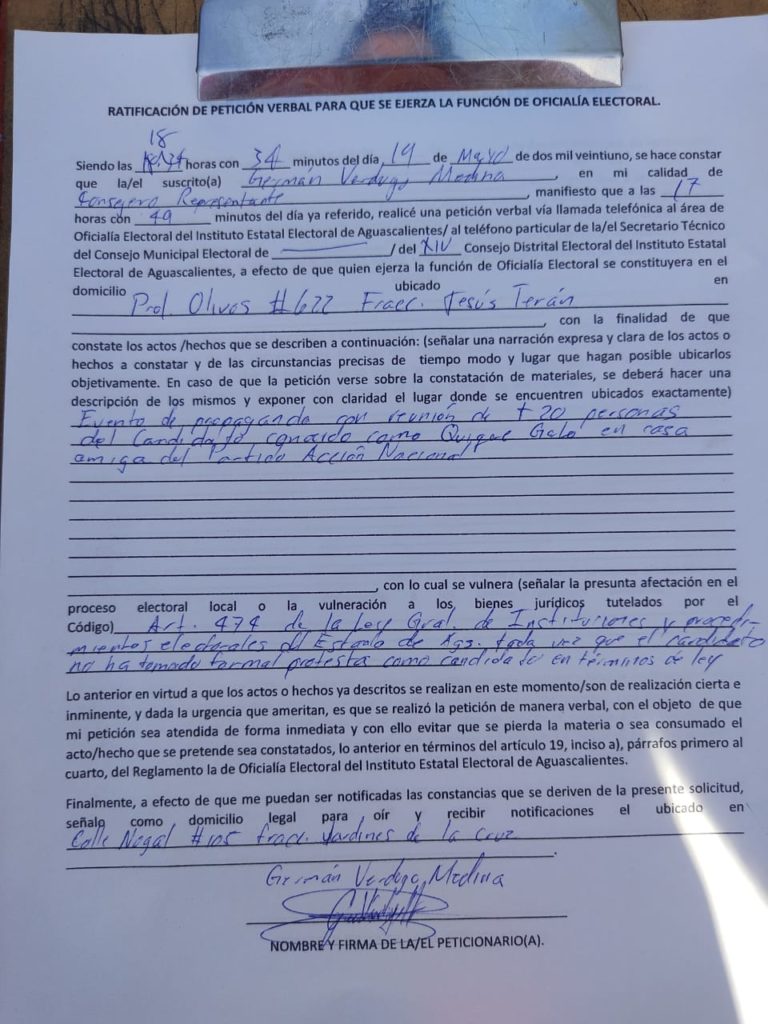 RATIFICACIÓN DE PETICIÓN VERBAL PARA QUE SE EJERZA LA FUNCIÓN DE OFICIALÍA ELECTORAL.
18
Siendo las horas con 34 minutos del día 19 de Mayo de dos mil veintiuno, se hace constar
que la/el suscrito(a) Germán Verdugo Medina, en mi calidad de
Consejero Representante, manifiesto que a las 17
horas con 49 minutos del día ya referido, realicé una petición verbal vía llamada telefónica al área de
Oficialía Electoral del Instituto Estatal Electoral de Aguascalientes/ al teléfono particular de la/el Secretario Técnico
del Consejo Municipal Electoral de / del XIV Consejo Distrital Electoral del Instituto Estatal
Electoral de Aguascalientes, a efecto de que quien ejerza la función de Oficialía Electoral se constituyera en el
domicilio ubicado en
Prol. Olivos #622 Fracc. Jesús Terán
, con la finalidad de que
constate los actos /hechos que se describen a continuación: (señalar una narración expresa y clara de los actos o
hechos a constatar y de las circunstancias precisas de tiempo modo y lugar que hagan posible ubicarlos
objetivamente. En caso de que la petición verse sobre la constatación de materiales, se deberá hacer una
descripción de los mismos y exponer con claridad el lugar donde se encuentren ubicados exactamente)
Evento de propaganda con reunión de + 20 personas
del Candidato conocido como Quique Galo en casa
amiga del Partido Acción Nacional
, con lo cual se vulnera (señalar la presunta afectación en el
proceso electoral local o la vulneración a los bienes jurídicos tutelados por el
Código) Art. 474 de la Ley Gral. de Instituciones y procedi-
mientos electorales del Estado de Ags. toda vez que el candidato
no ha tomado formal protesta como candidato en términos de ley
Lo anterior en virtud a que los actos o hechos ya descritos se realizan en este momento/son de realización cierta e
inminente, y dada la urgencia que ameritan, es que se realizó la petición de manera verbal, con el objeto de que
mi petición sea atendida de forma inmediata y con ello evitar que se pierda la materia o sea consumado el
acto/hecho que se pretende sea constatados, lo anterior en términos del artículo 19, inciso a), párrafos primero al
cuarto, del Reglamento la de Oficialía Electoral del Instituto Estatal Electoral de Aguascalientes.
Finalmente, a efecto de que me puedan ser notificadas las constancias que se deriven de la presente solicitud,
señalo como domicilio legal para oír y recibir notificaciones el ubicado en
Calle Nogal #105 fracc. Jardines de la Cruz
.
Germán Verdugo Medina
NOMBRE Y FIRMA DE LA/EL PETICIONARIO(A).